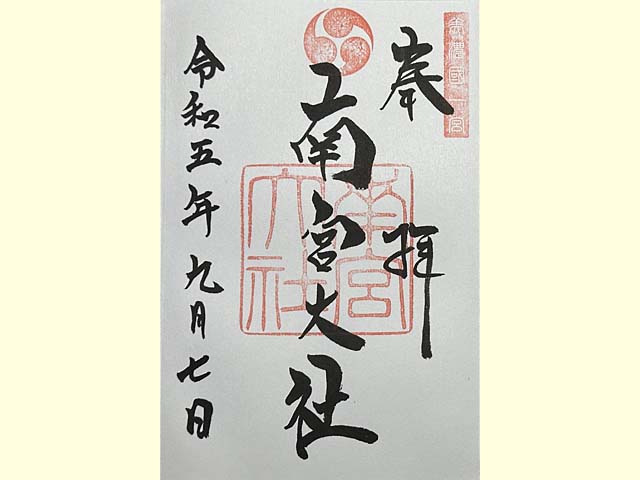 美濃國一宮
奉拝
南宮大社
南宮大社
令和五年九月七日